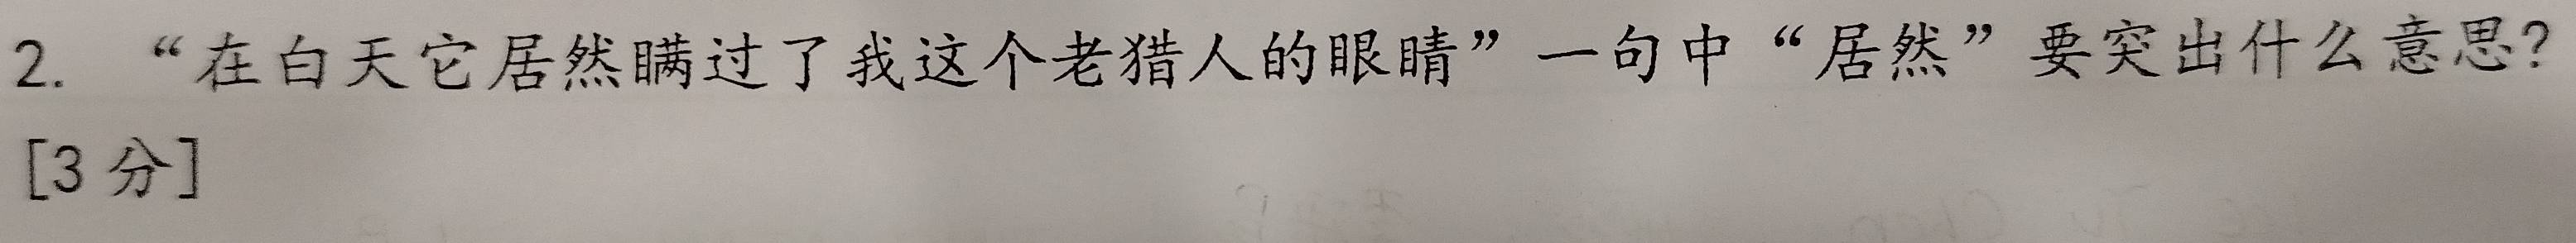 2. “在白天它居然瞒过了我这个老猎人的眼睛”一句中“居然”要突出什么意思?
[3 分]